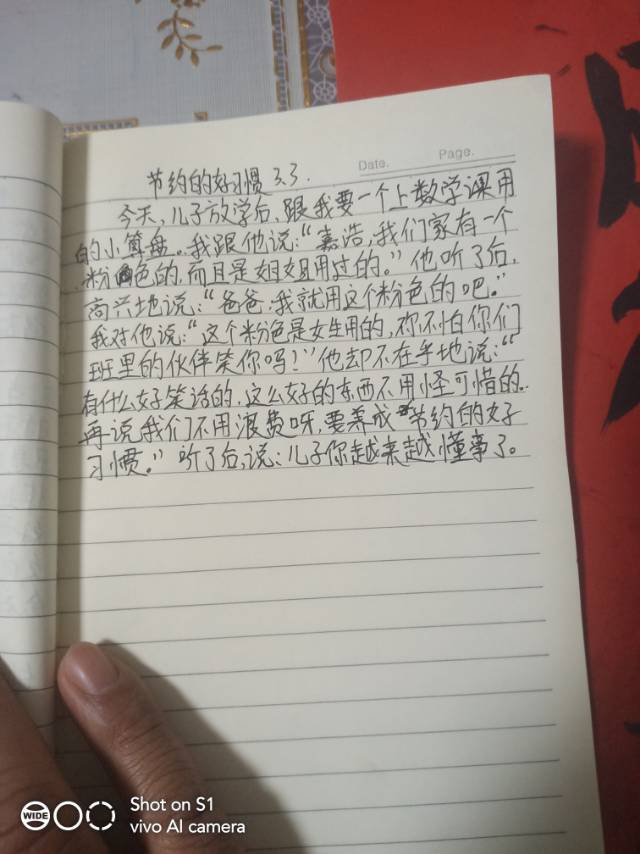 Date.
Page.
节约的好习惯 3.3.
今天,儿子放学后,跟我要一个上数学课用
的小算盘。我跟他说:“嘉浩,我们家有一个
粉色的,而且是姐姐用过的。”他听了后,
高兴地说:“爸爸,我就用这个粉色的吧。”
我对他说:“这个粉色是女生用的,你不怕你们
班里的伙伴笑你吗!”他却不在乎地说:“
有什么好笑话的,这么好的东西不用怪可惜的..
再说我们不用浪费呀,要养成节约的好
习惯。”听了后,说:儿子你越来越懂事了。
WIDE
Shot on S1
vivo AI camera